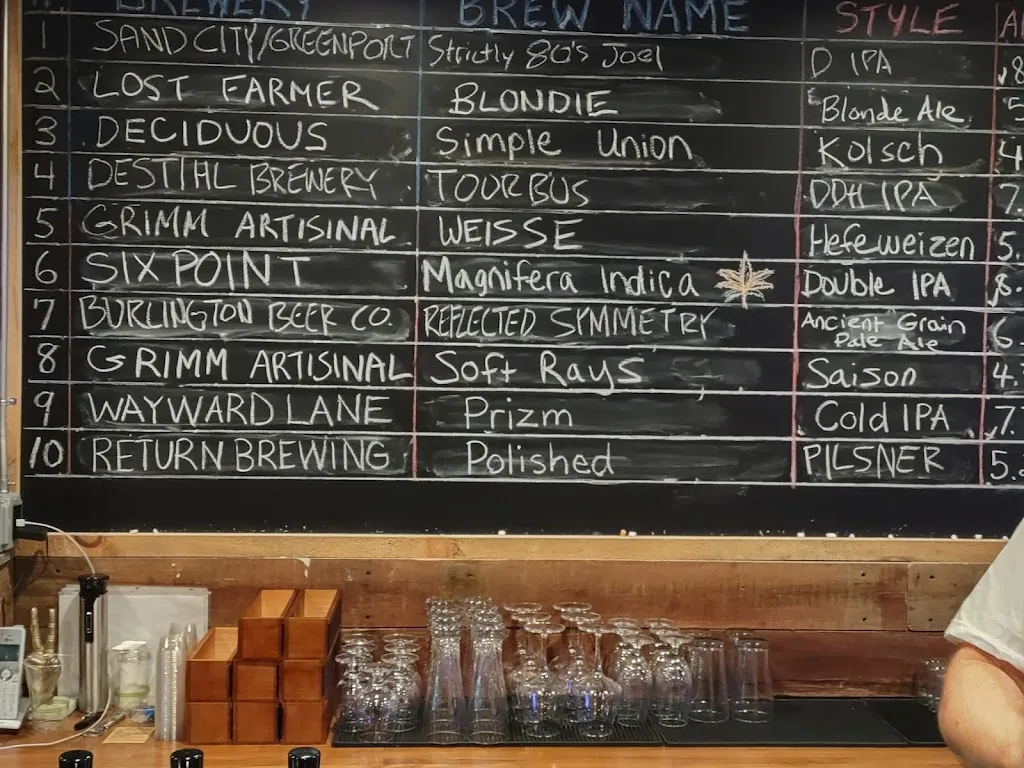 BREWERY BREW NAME STYLE
1 SAND CITY/GREENPORT Strictly 80's Joel D IPA
2 LOST FARMER BLONDIE Blonde Ale 5
3 DECIDUOUS Simple Union Kolsch 4
4 DESTIHL BREWERY TOUR BUS DDH IPA 7.
5 GRIMM ARTISINAL WEISSE Hefeweizen 5.
6 SIXPOINT Magnifera Indica Double IPA 8.
7 BURLINGTON BEER CO. REFLECTED SYMMETRY Ancient Grain
Pale Ale 6
8 GRIMM ARTISINAL Soft Rays Saison 4.
9 WAYWARD LANE Prizm Cold IPA 7.
10 RETURN BREWING Polished PILSNER 5.